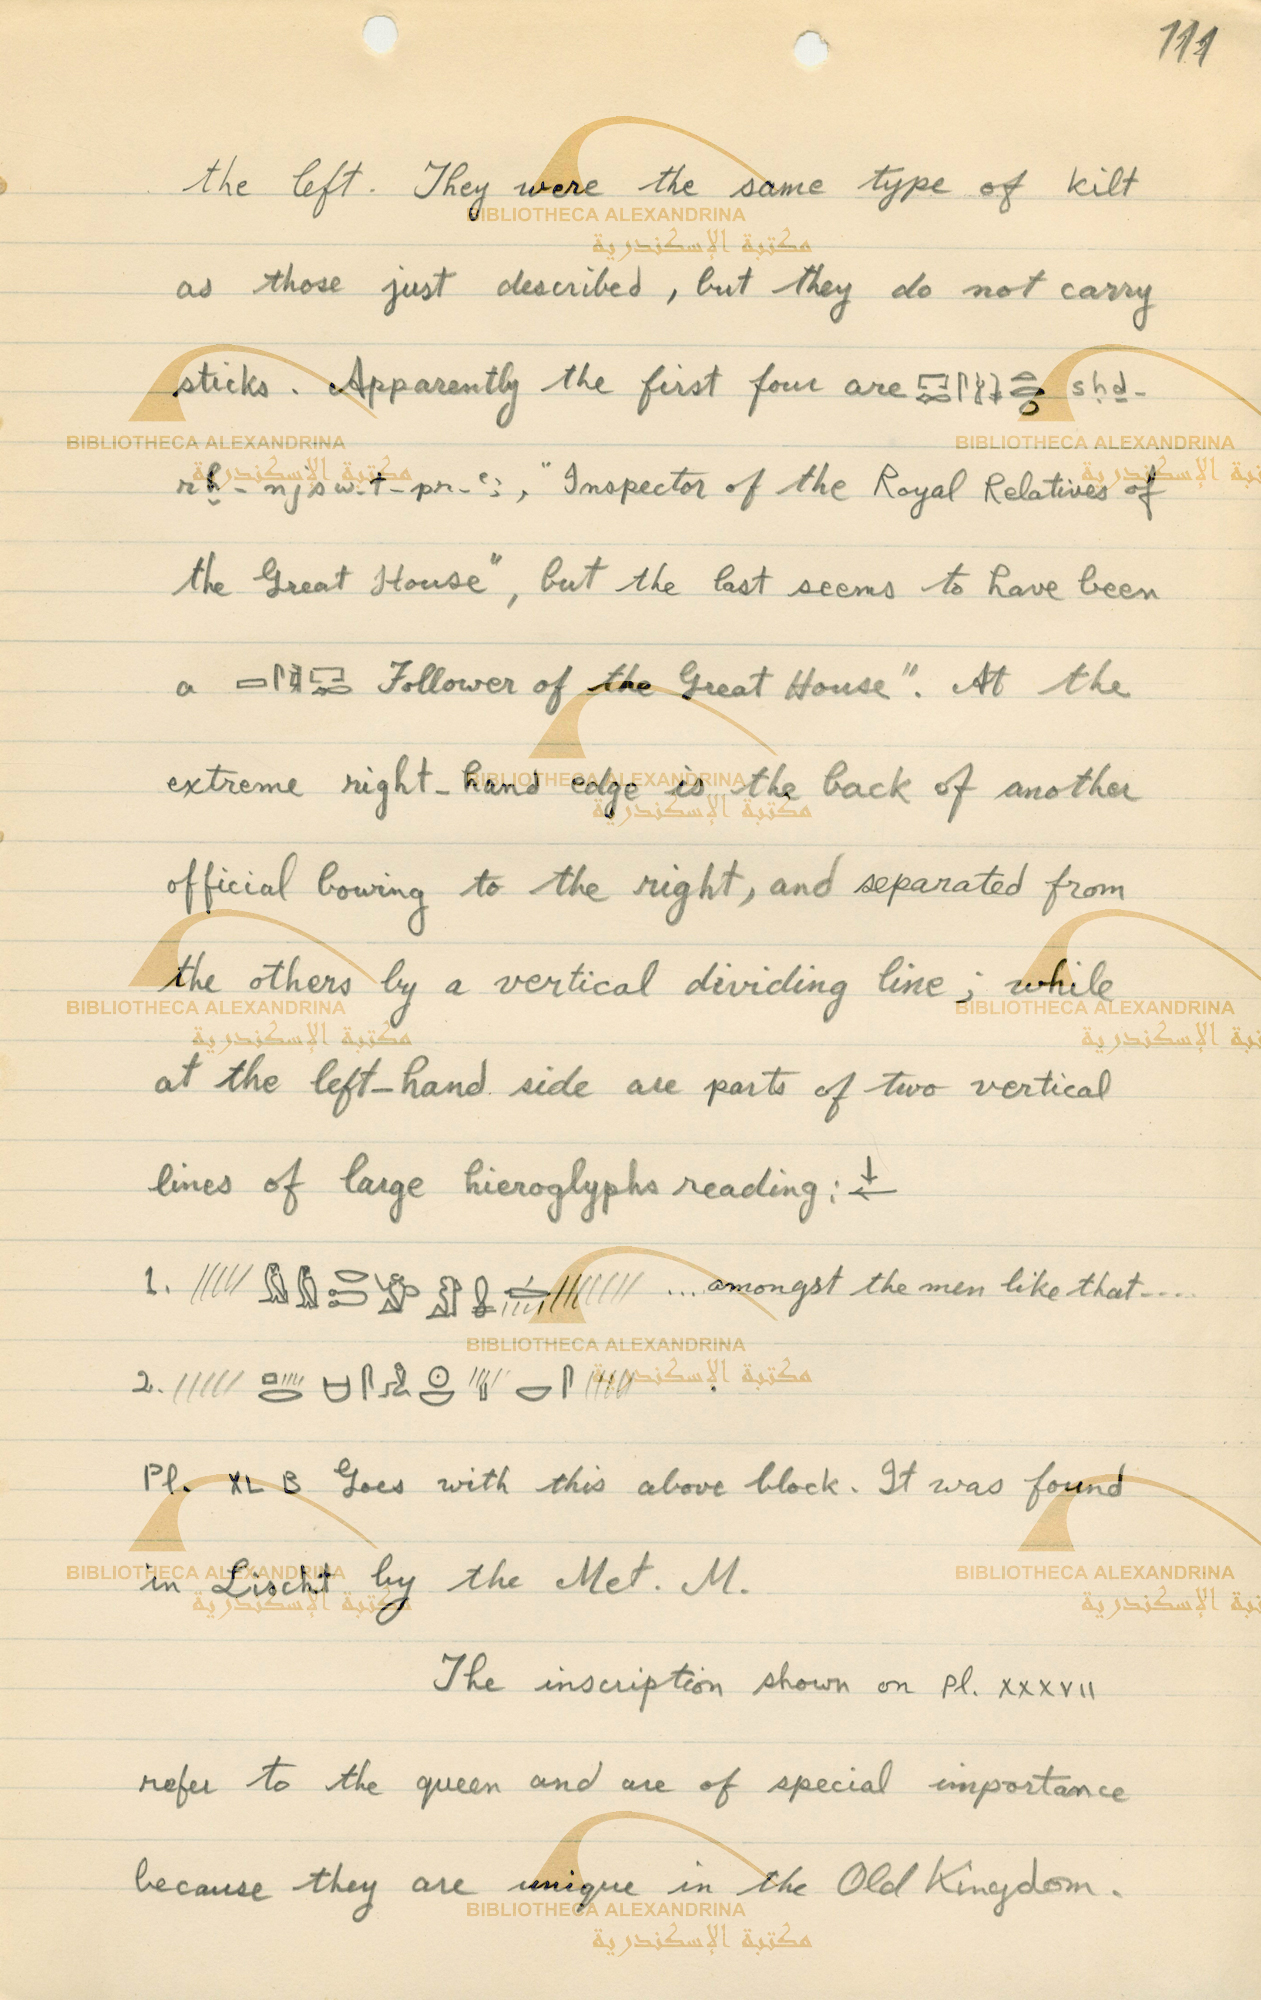 111
the left. They were the same type of kilt
as those just described, but they do not carry
sticks. Apparently the first four are sḥḏ-
rḫ-njswt-pr-ꜥꜣ, "Inspector of the Royal Relatives of
the Great House", but the last seems to have been
a Follower of the Great House". At the
extreme right-hand edge is the back of another
official bowing to the right, and separated from
the others by a vertical dividing line; while
at the left-hand side are parts of two vertical
lines of large hieroglyphs reading: ↓←
1. ... amongst the men like that ....
2.
Pl. XL B Goes with this above block. It was found
in Lischt by the Met. M.
The inscription shown on Pl. XXXVII
refer to the queen and are of special importance
because they are unique in the Old Kingdom.
BIBLIOTHECA ALEXANDRINA
مكتبة الإسكندرية